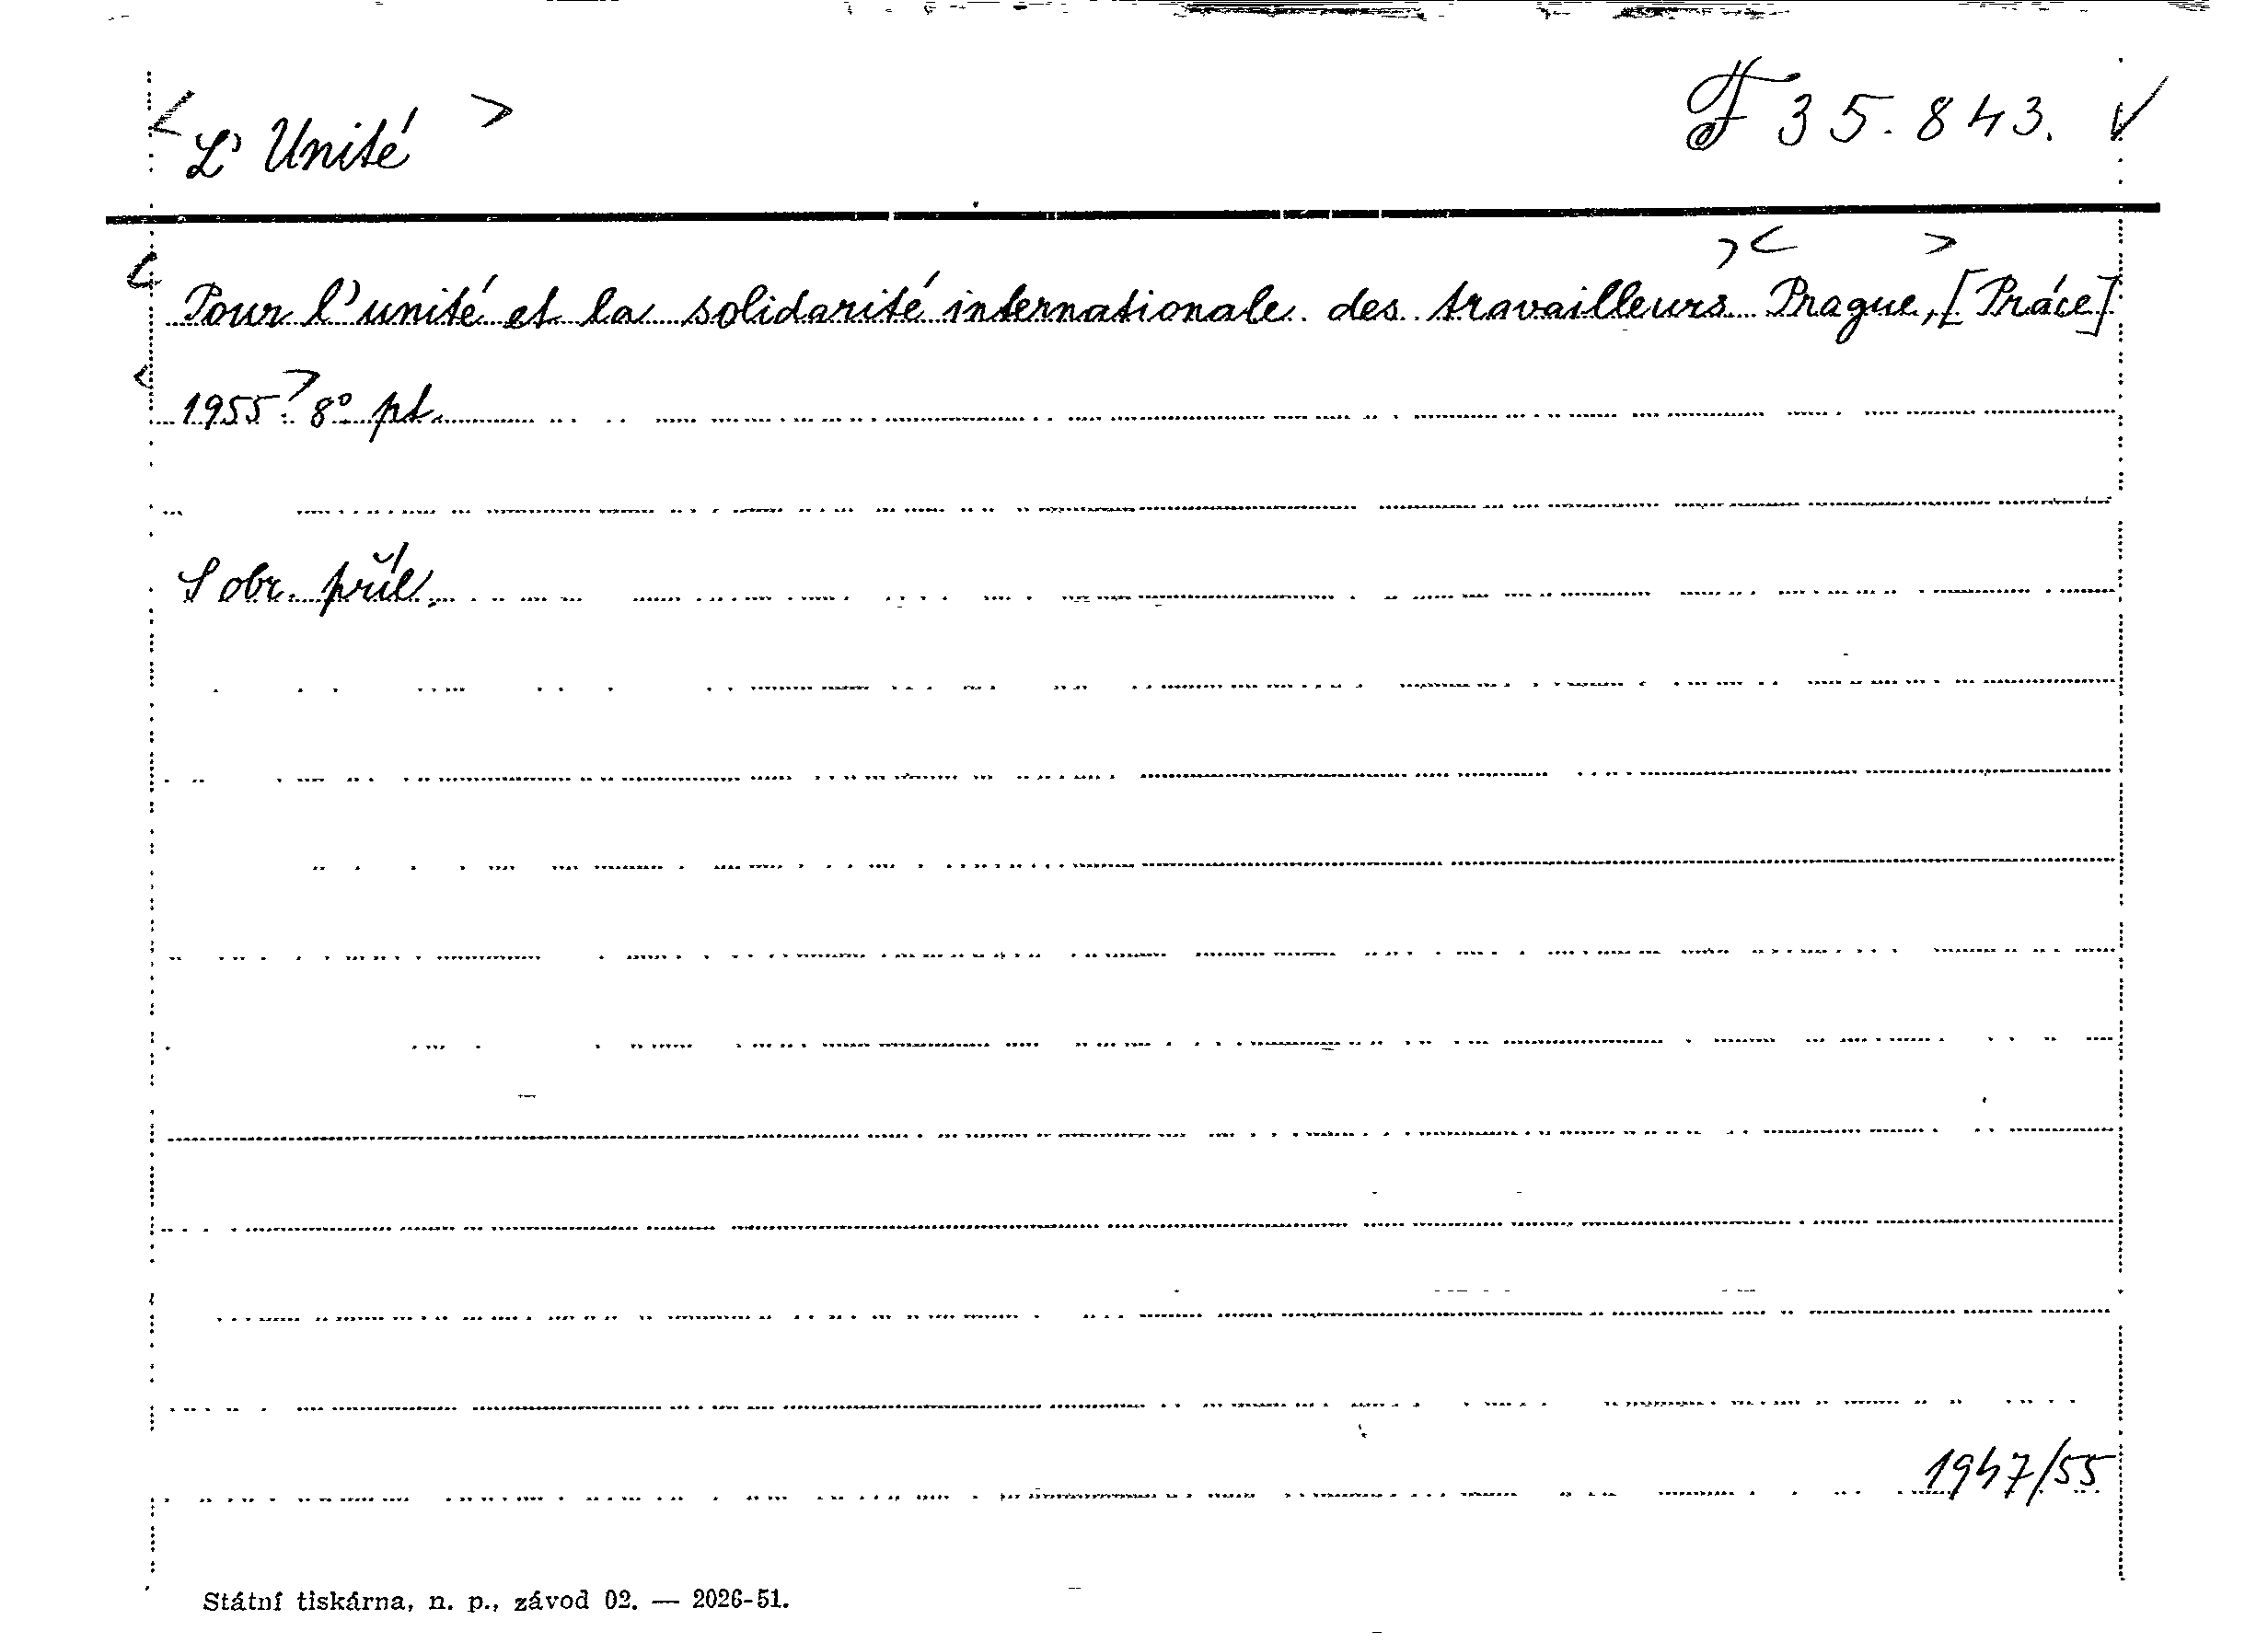 < L' Unité > F 35.843. ✓
< Pour l'unité et la solidarité internationale des travailleurs >< Prague, > [Práce]
< 1955. > 8° pt.
S obr. příl.
1947/55
Státní tiskárna, n. p., závod 02. — 2026-51.